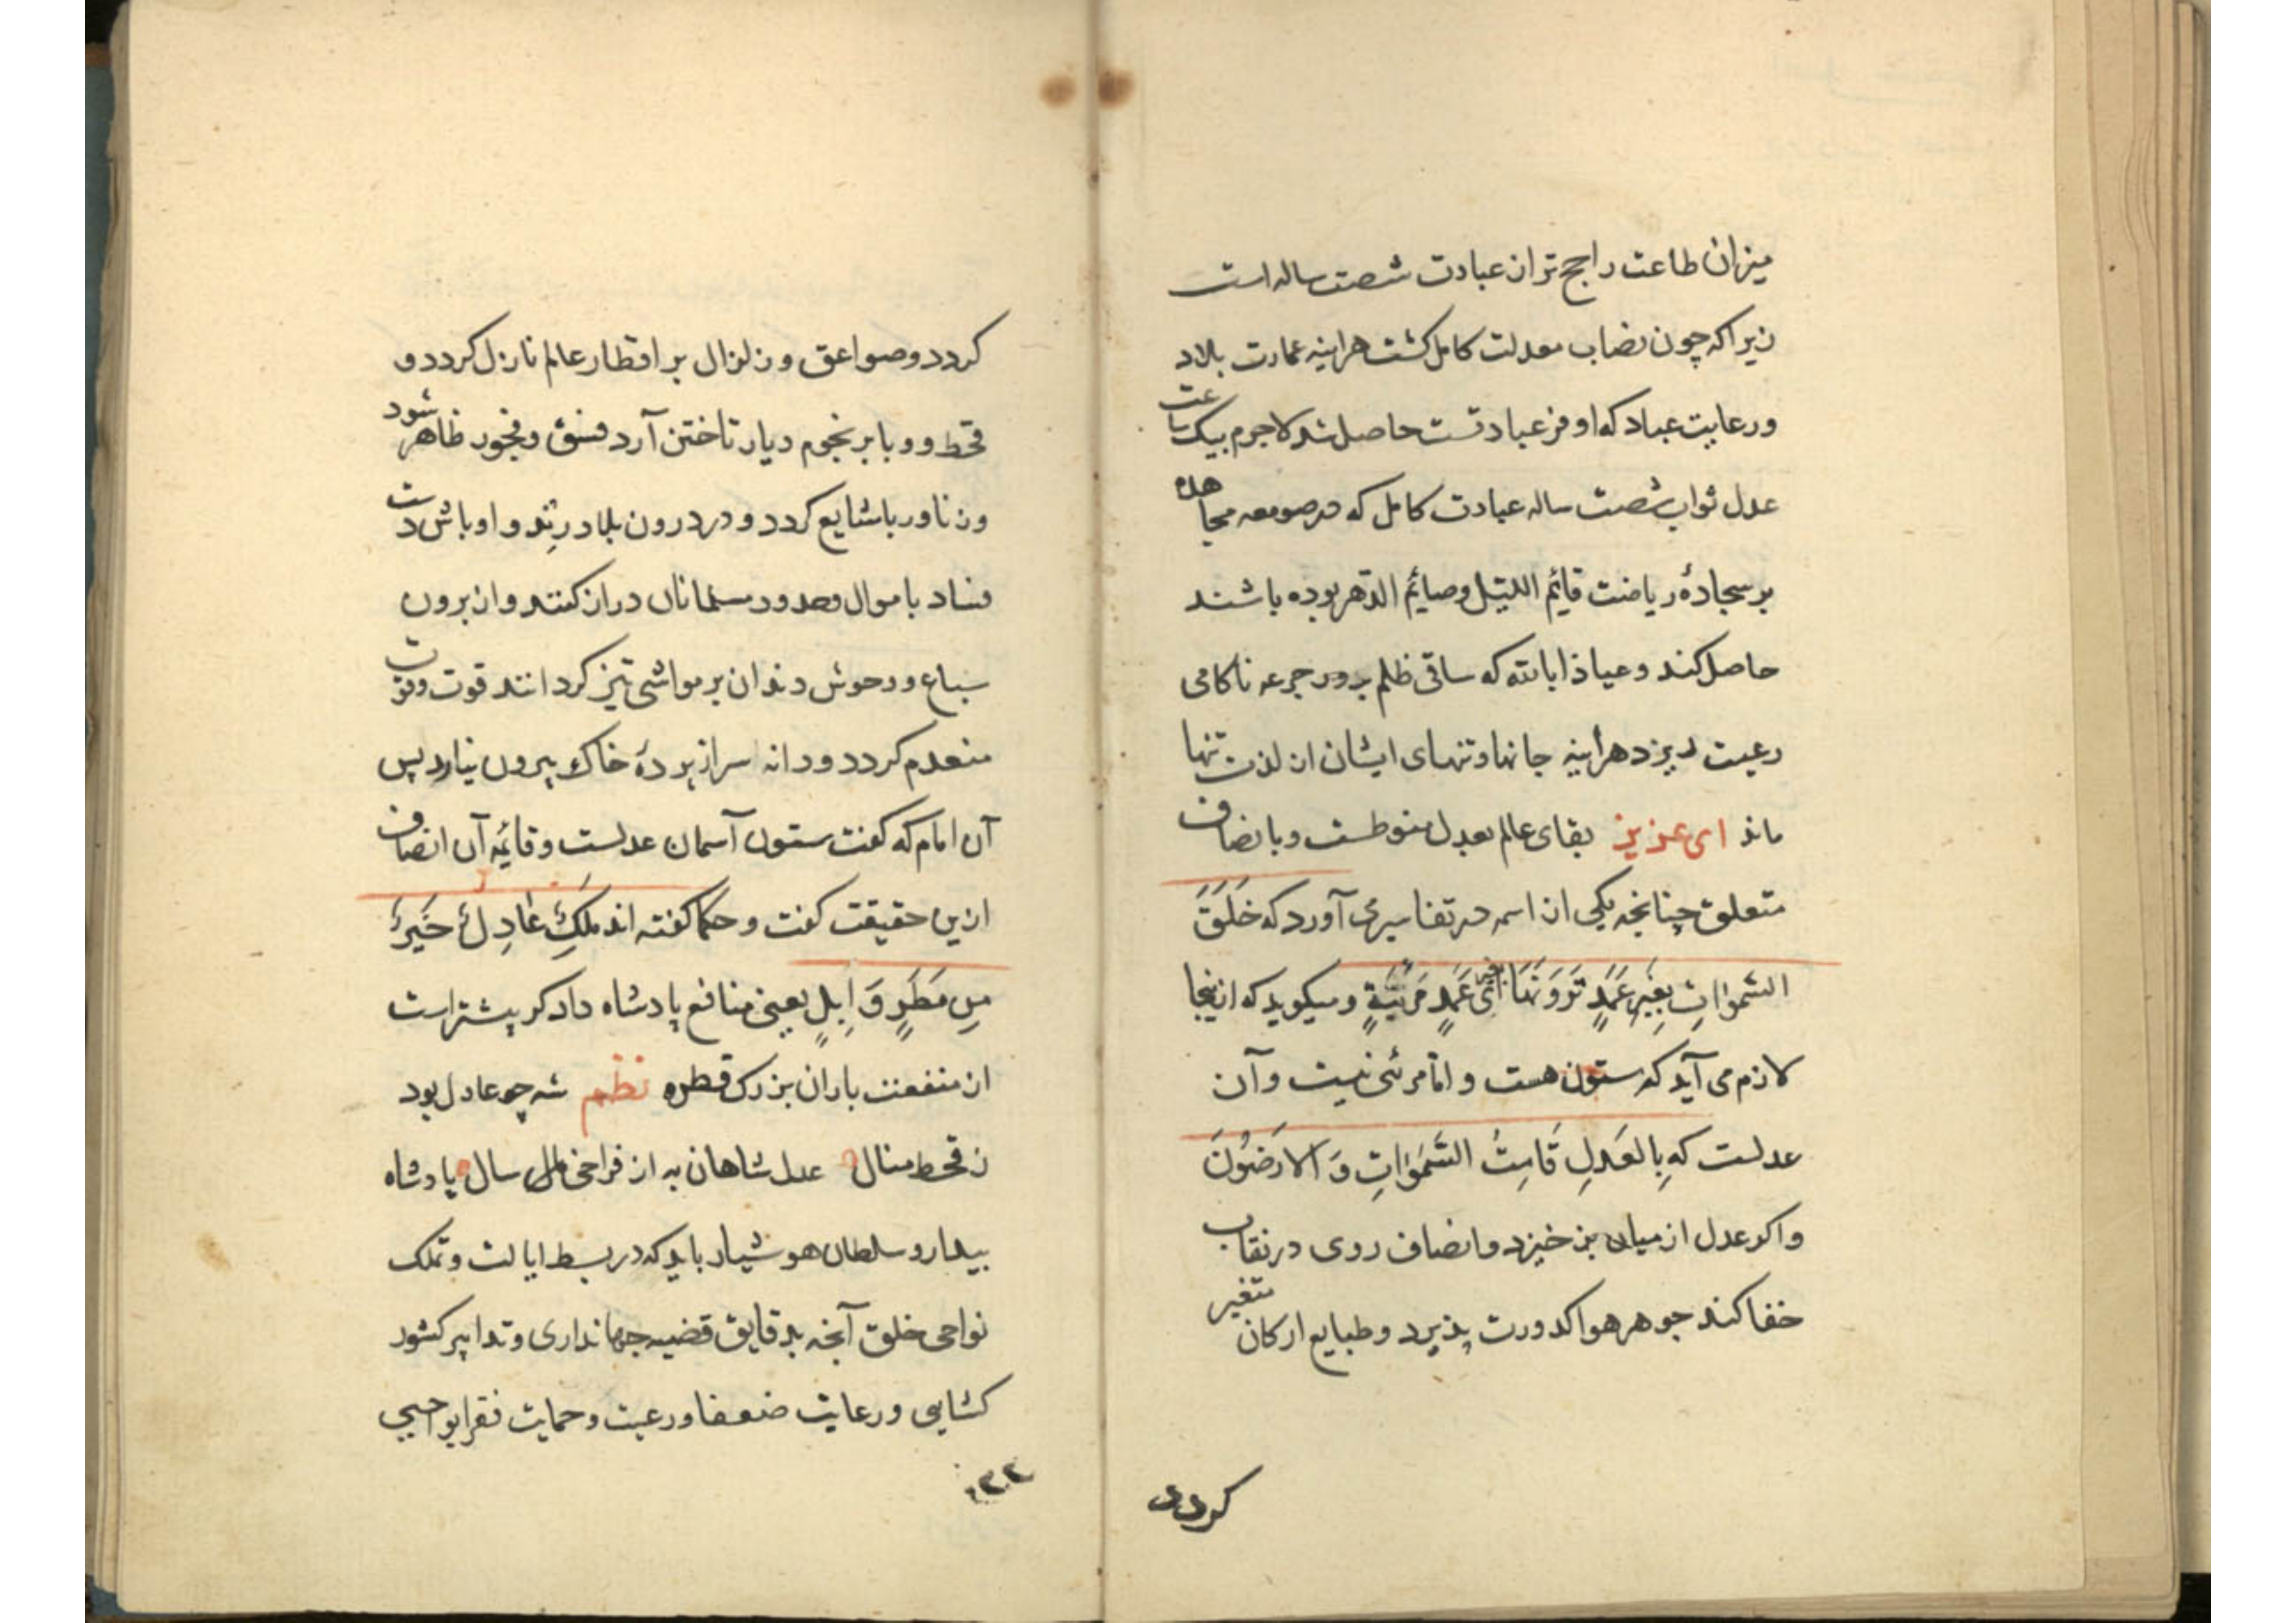 میزان طاعت راجح تر ان عبادت شصت ساله است
زیرا که چون نصاب معدلت کامل کشت هراینه عمارت بلاد
ورعایت عباد که اوفر عبادتست حاصل شد لاجرم بیک ساعت
عدل ثواب شصت ساله عبادت کامل که در صومعه مجاهده
بر سجادهٔ ریاضت قائم اللیل وصایم الدهر بوده باشند
حاصل کند وعیاذا بالله که ساقی ظلم بدور جرعه ناکامی
رعیت ریزد هراینه جانها وتنهای ایشان از لذت تنها
ماند ای عزیز بقای عالم بعدل منوطست وبانصاف
متعلق چنانچه یکی از اسمه در تفاسیر می آورد که خَلَقَ
السَّمٰوَاتِ بِغَیْرِ عَمَدٍ تَرَوْنَهَا اَیْ بغیر عَمَدٍ مَرْئِیَّةٍ ومیکوید که ازینجا
لازم می آید که ستون هست واما مرئی نیست وآن
عدلست که بِالعَدلِ قَامَتْ السَّمٰوَاتِ وَالارَضُونَ
واکر عدل از میان بر خیزد وانصاف روی در نقاب
خفا کند جوهر هوا کدورت پذیرد وطبایع ارکان متغیر
کردد
کردد وصواعق وزلزال بر اقطار عالم نازل کردد و
قحط ووبا بر نجوم دیار تاختن آرد فسق وفجور ظاهر شود
وزنا وربا شایع کردد ودر درون بلاد رند واوباش دست
فساد باموال وحدود مسلمانان دراز کنند واز برون
سباع ووحوش دندان بر مواشی تیز کردانند قوت وقوت
منعدم کردد ودانه سر از پردهٔ خاک بیرون نیارد پس
آن امام که کفت ستون آسمان عدلست وقائمهٔ آن انصاف
ازین حقیقت کفت وحکما کفته اند مَلِکٌ عَادِلٌ خَیْرٌ
مِن مَطَرٍ وَابِلٍ یعنی منافع پادشاه دادکر بیشتر است
از منفعت باران بزرک قطره نظم شه چو عادل بود
ز قحط منال عدل شاهان به از فراخی سال پادشاه
بیدار وسلطان هوشیار باید که در بسط ایالت وتملک
نواحی خلق آنچه بدقایق قضیه جهانداری وتدابیر کشور
کشایی ورعایت ضعفا ورعیت وحمایت فقرا بواجبی